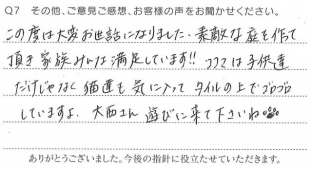 Q7 その他、ご意見ご感想、お客様の声をお聞かせください。
この度は大変お世話になりました。素敵な庭を作て
頂き家族みんな満足しています!! ココは子供達
だけじゃなく猫達も気に入って タイルの上でゴロゴロ
していますよ。大西さん 遊びに来て下さいね
ありがとうございました。今後の指針に役立たせていただきます。